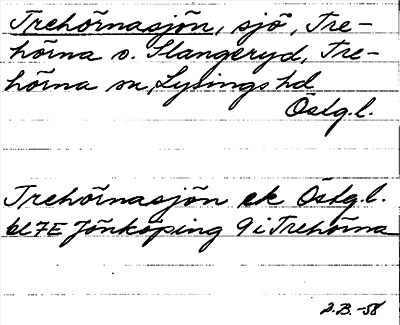 Trehörnasjön, sjö, Tre-
hörna o. Stangeryd, Tre-
hörna sn, Lysings hd
Östg.l.
Trehörnasjön ek Östg.l.
bl 7E Jönköping 9 i Trehörna
2.B.-58